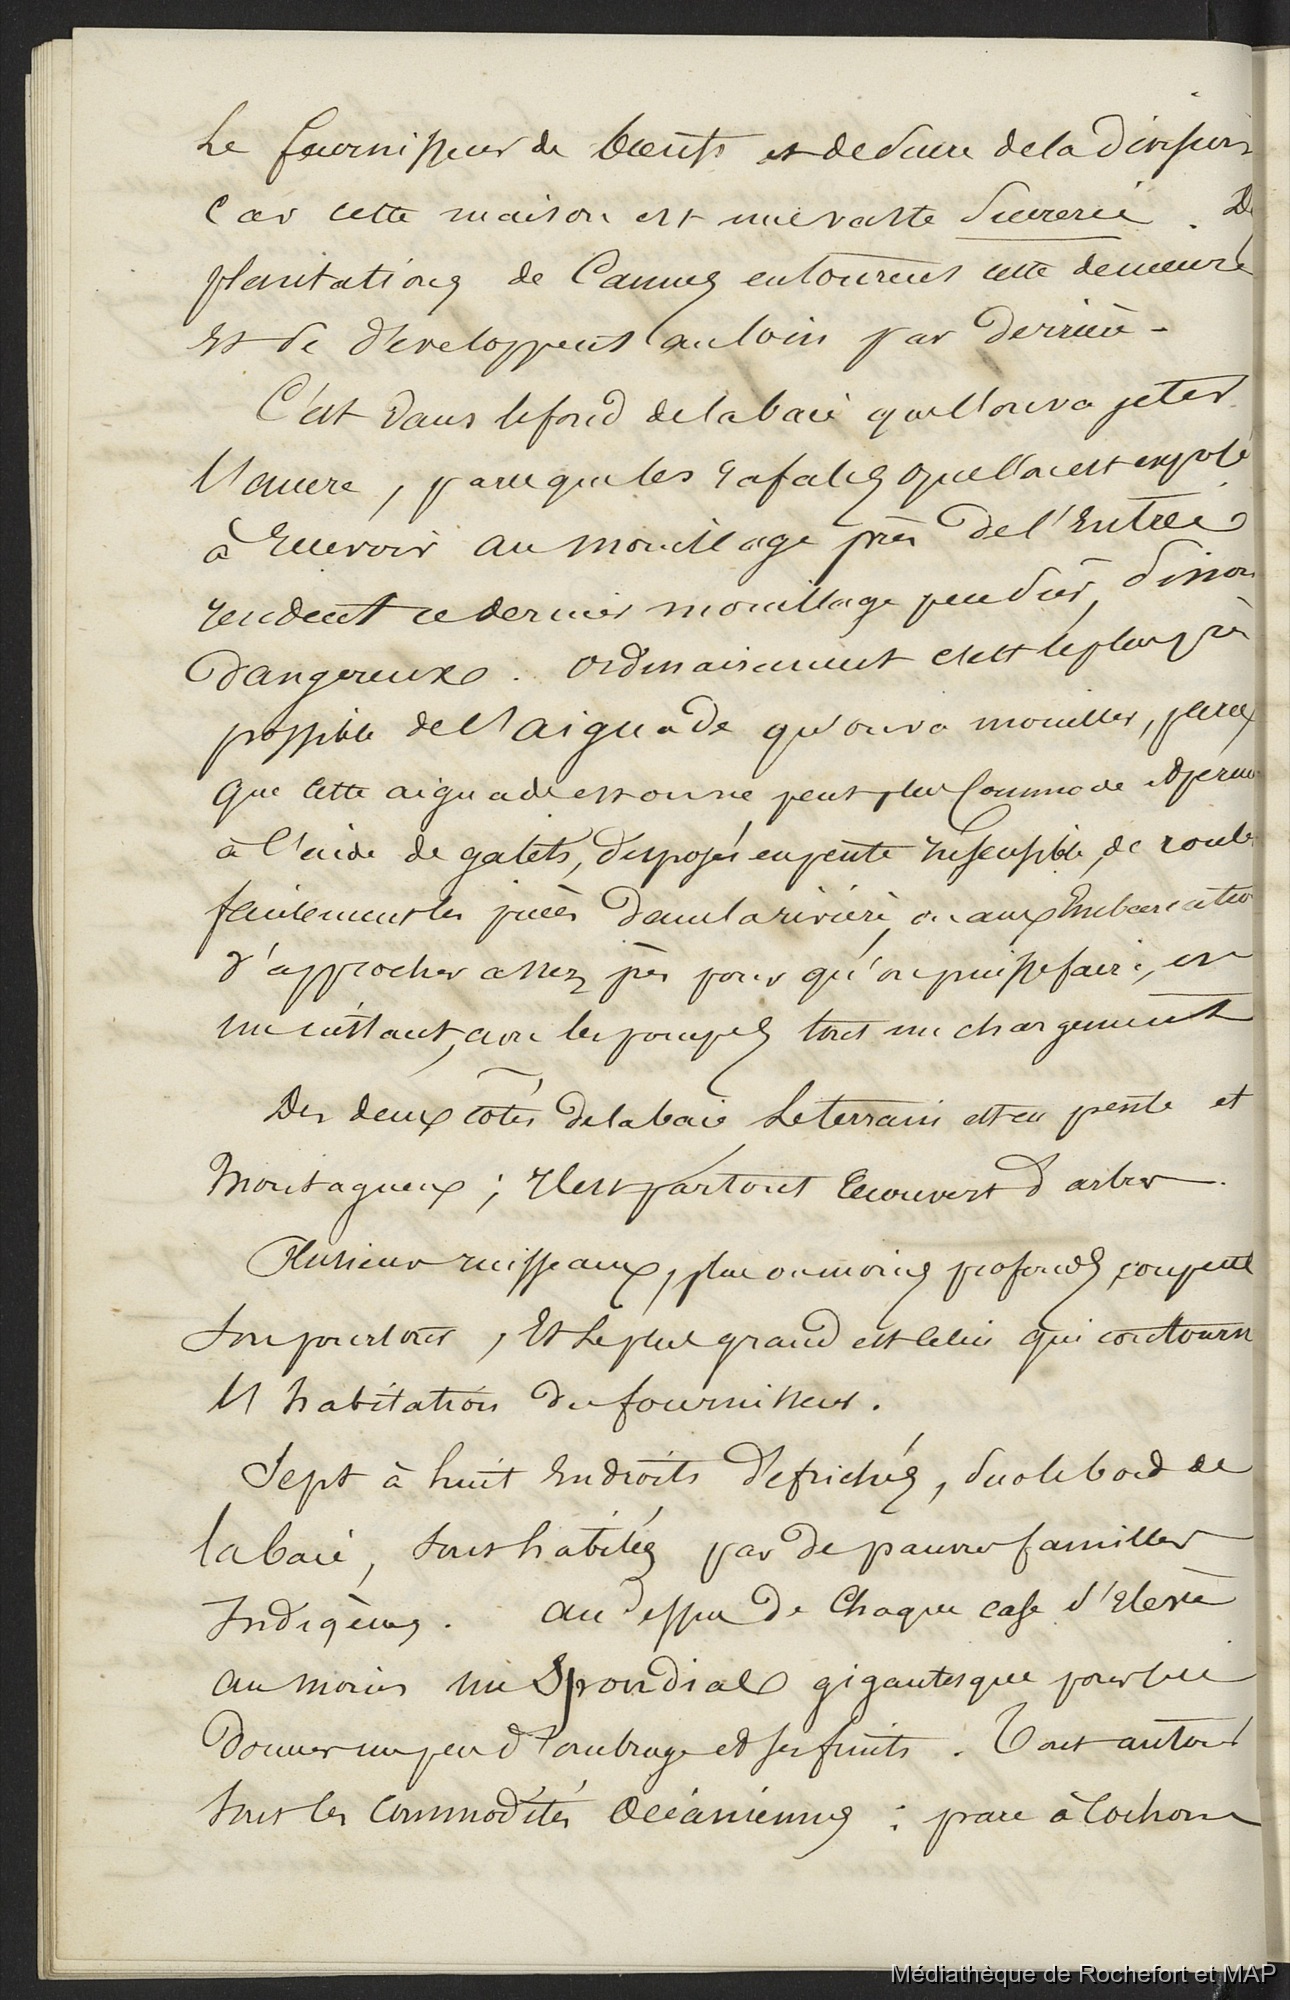 Le fournisseur de bœufs et de sucre de la division
Car cette maison est une vaste Sucrerie. De
plantations de Cannes entourent cette demeure
Et se développent au loin par derrière -
C'est dans le fond de la baie que l'on va jeter
L'ancre, parceque les rafales que l'on est exposé
à recevoir au mouillage près de l'Entrée
rendent ce dernier mouillage peu sûr, sinon
Dangereux. ordinairement c'est le plus près
possible de l'aiguade qu'on va mouiller, parce
que cette aiguade est on ne peut plus Commode et permet
à l'aide de galets, disposés en pente insensible, de rouler
facilement les pièces dans la rivière, ou aux Embarcation
d'approcher assez près pour qu'on puisse faire, en
un instant, avec les pompes tout un chargement
Des deux côtés de la baie le terrain est en pente et
Montagneux ; Il est partout Recouvert d'arbres.
Plusieurs ruisseaux, plus ou moins profonds, coupent
son pourtour, Et le plus grand est celui qui contourne
L'habitation du fournisseur.
Sept à huit Endroits défrichés, sur le bord de
la baie, sont habités par de pauvres familles
Indigènes. Au dessus de Chaque case s'élève
au moins un Spondias gigantesque pour lui
Donner un peu d'ombrage et ses fruits. Tout autour
sont les commodités Océaniennes : parc à Cochons